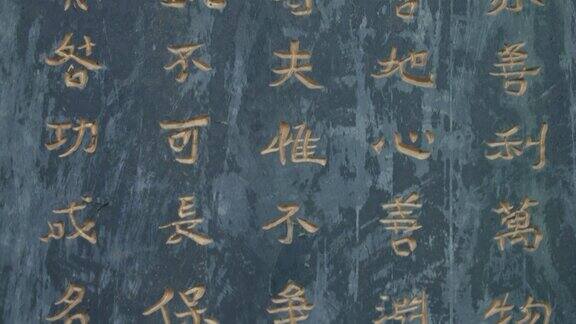 善利萬物
地心善淵
夫惟不爭
不可長保
咎功成名